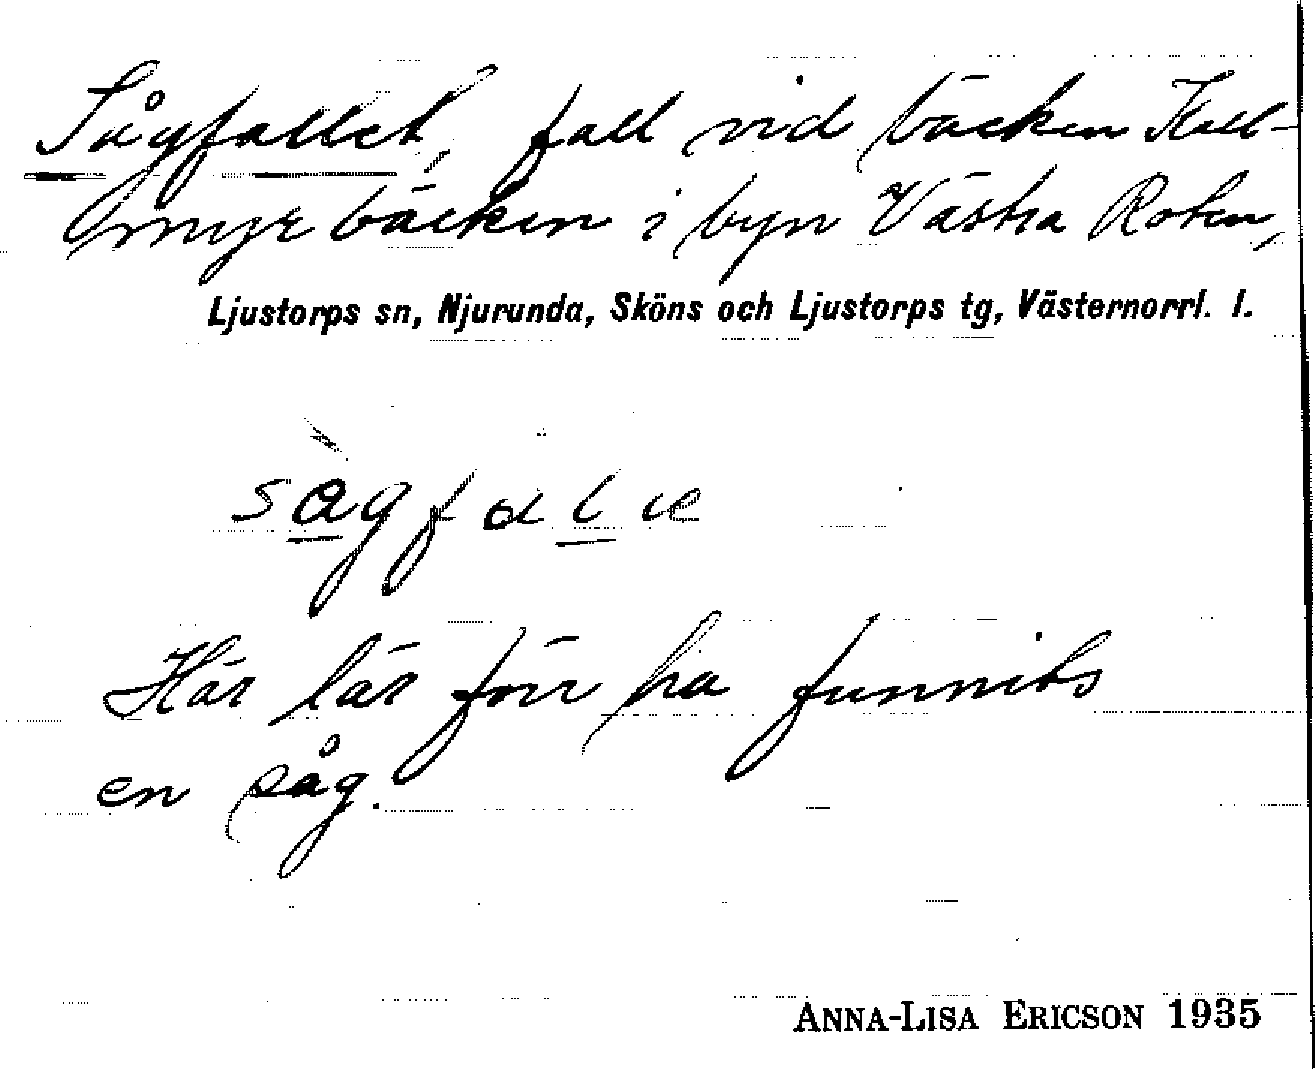 Sågfallet, fall vid bäcken Kall-
myrbäcken i byn Västra Roten,
Ljustorps sn, Njurunda, Sköns och Ljustorps tg, Västernorrl. l.
Här lär förr ha funnits
en såg.
ANNA-LISA ERICSON 1935